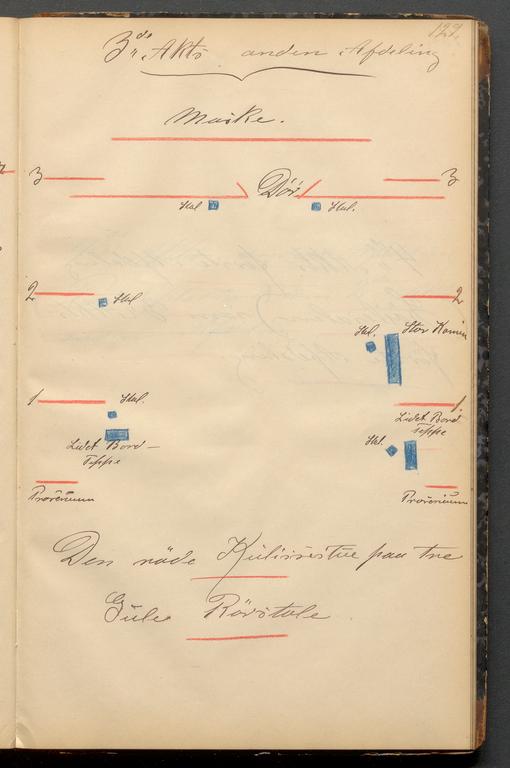 127.
3die Akts anden Afdeling
Maske.
3 Dör 3
Stol Stol.
2 Stol 2
Stol. Stor Kamin
1 Stol. 1.
Lidet Bord
Teppe
Stol.
Lidet Bord –
Teppe
Prosenium Prosenium
Den röde Kulissestue paa tre
Gule Rörstole